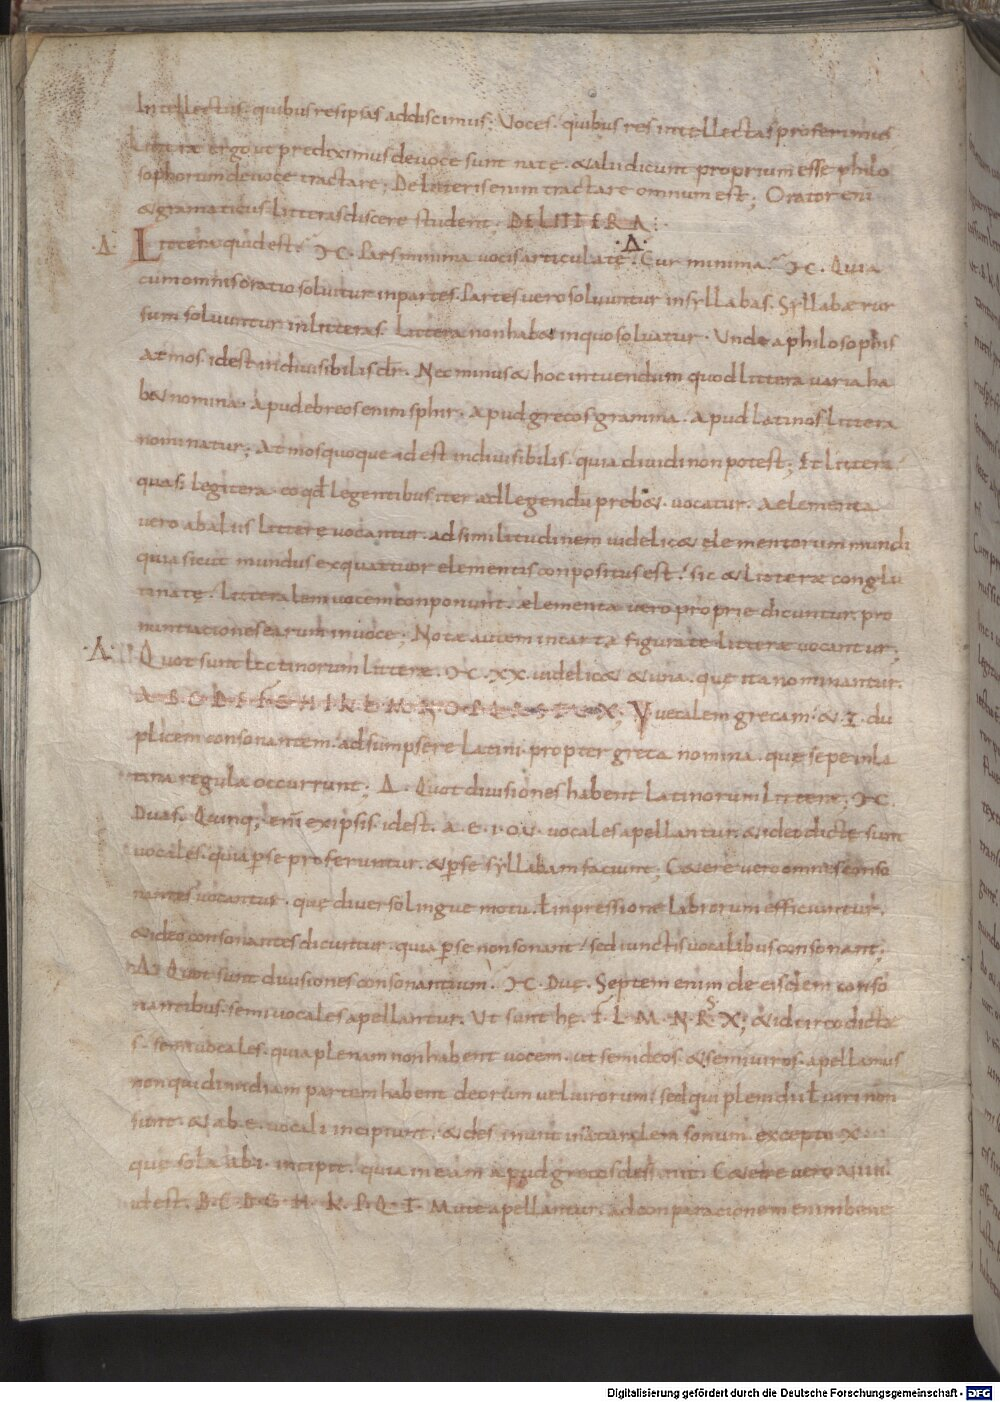 Intellectus. quibus res ipsas addiscimus; Voces. quibus res intellectas proferimus
Litterae ergo ut prediximus de voce sunt nate. & alii dicunt proprium esse philo
sophorum de voce tractare; De litteris enim tractare omnium est; Orator eni
& gramaticus litteras discere student; DE LITTERA:
·Δ· Littera quid est? ΜC. Pars minima vocis articulate. ·Δ· Cur minima? ΜC. Quia
cum omnis oratio solvitur in partes. Partes vero solvuntur in syllabas. Syllabae rur
sum solvuntur in litteras. Littera non hab& in quo solvatur. Unde a philosophis
atmos. id est indivisibilis dr̄. Nec minus & hoc intuendum quod littera varia ha
b& nomina. Apud ebreos enim sphir. apud grecos gramma. apud latinos littera
nominatur; Atmos quoque id est indivisibilis. quia dividi non potest; Et littera
quasi legitera. eo qđ legentibus iter ad legendū preb&. vocatur. Aelementa
vero ab aliis littere vocantur. ad similitudinem videlic& elementorum mundi
quia sicut mundus ex quattuor elementis conpositus est. sic & litterae conglu
tinatę. litteralem vocem conponunt. aelementa vero proprie dicuntur. pro
nuntiationes earum in voce; Notae autem in carta figuratę litterae vocantur;
·Δ· Quot sunt lictinorum litterae. ΜC. XX. videlic& & una. que ita nominantur.
A. B. C. D. E. F. G. H. I. K. L. M. N. O. P. Q. R. S. T. V. X; Y vocalem grecam. & Z. du
plicem consonantem. adsumpsere latini. propter greca nomina. que sepe in la
tina regula occurrunt; Δ. Quot divisiones habent latinorum litterę; ΜC.
Duas. Quinq; eni ex ipsis. id est. a. e. i. o. u. vocales apellantur. & ideo dictę sunt
vocales. quia p̄ se proferuntur. & p̄ se syllabam faciunt; C&ere vero omnes conso
nantes vocantur. que diverso lingue motu. ł inpressione labrorum efficiuntur.
& ideo consonantes dicuntur. quia p̄ se non sonant. sed iunctis vocalibus consonant;
·Δ· Quot sunt divisiones consonantium. ΜC. Duę. Septem enim de eisdem conso
nantibus. semivocales apellantur. Ut sunt hę. F. L. M. N. R. S. X; & idcirco dictae
s. semivocales. quia plenam non habent vocem. ut semideos. & semiviros. apellamus
non qui dimidiam partem habent deorum vel virorum. sed qui pleni dii ł viri non
sunt. & ab. e. vocali incipiunt. & desinunt in eundem sonum. excepto X.
que sola ab i. incipit. quia in eam apud grecos desinit. C&ere vero
id est. B. C. D. G. H. K. P. Q. T. Mute apellantur. ad conparacionem enim bene